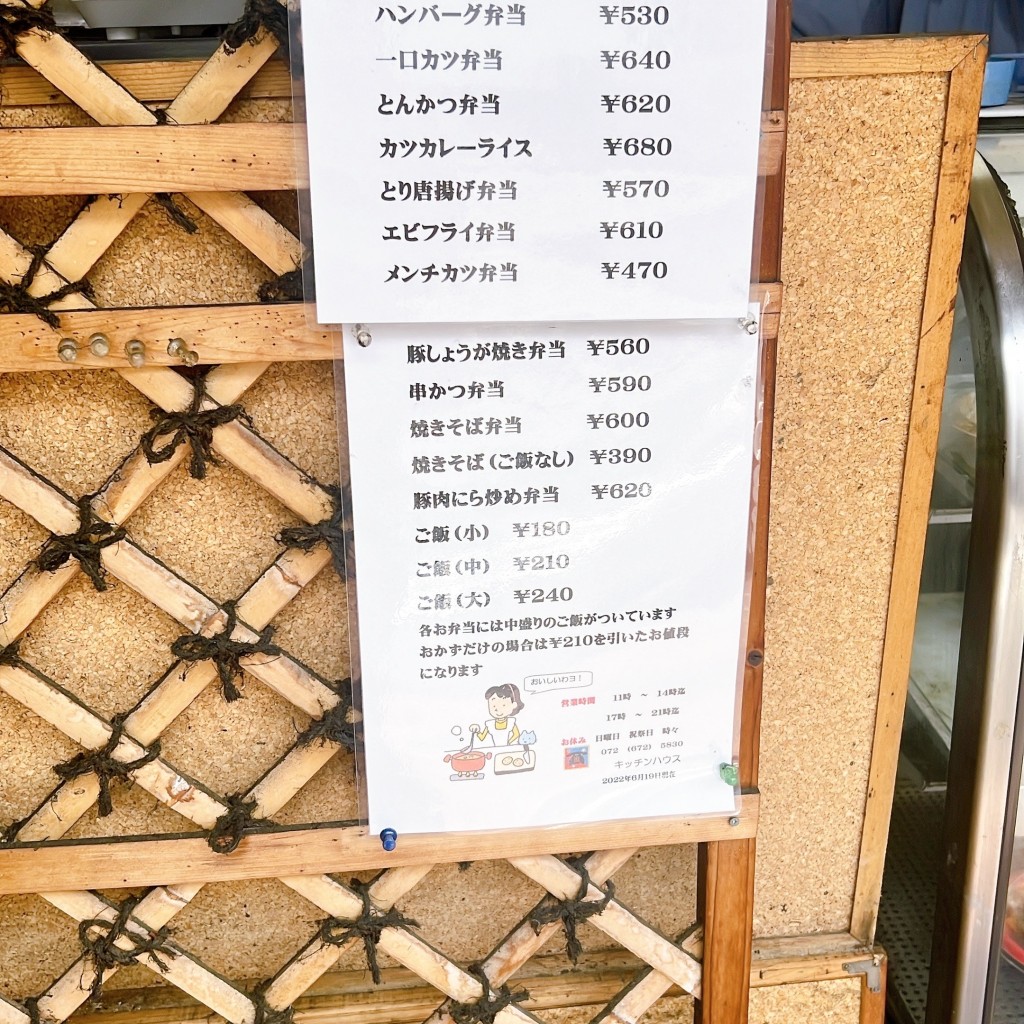 ハンバーグ弁当 ¥530
一口カツ弁当 ¥640
とんかつ弁当 ¥620
カツカレーライス ¥680
とり唐揚げ弁当 ¥570
エビフライ弁当 ¥610
メンチカツ弁当 ¥470
豚しょうが焼き弁当 ¥560
串かつ弁当 ¥590
焼きそば弁当 ¥600
焼きそば(ご飯なし) ¥390
豚肉にら炒め弁当 ¥620
ご飯(小) ¥180
ご飯(中) ¥210
ご飯(大) ¥240
各お弁当には中盛りのご飯がついています
おかずだけの場合は¥210を引いたお値段
になります
おいしいわヨ！
営業時間 11時 ～ 14時迄
17時 ～ 21時迄
お休み 日曜日 祝祭日 時々
072 (672) 5830
キッチンハウス
2022年6月19日現在